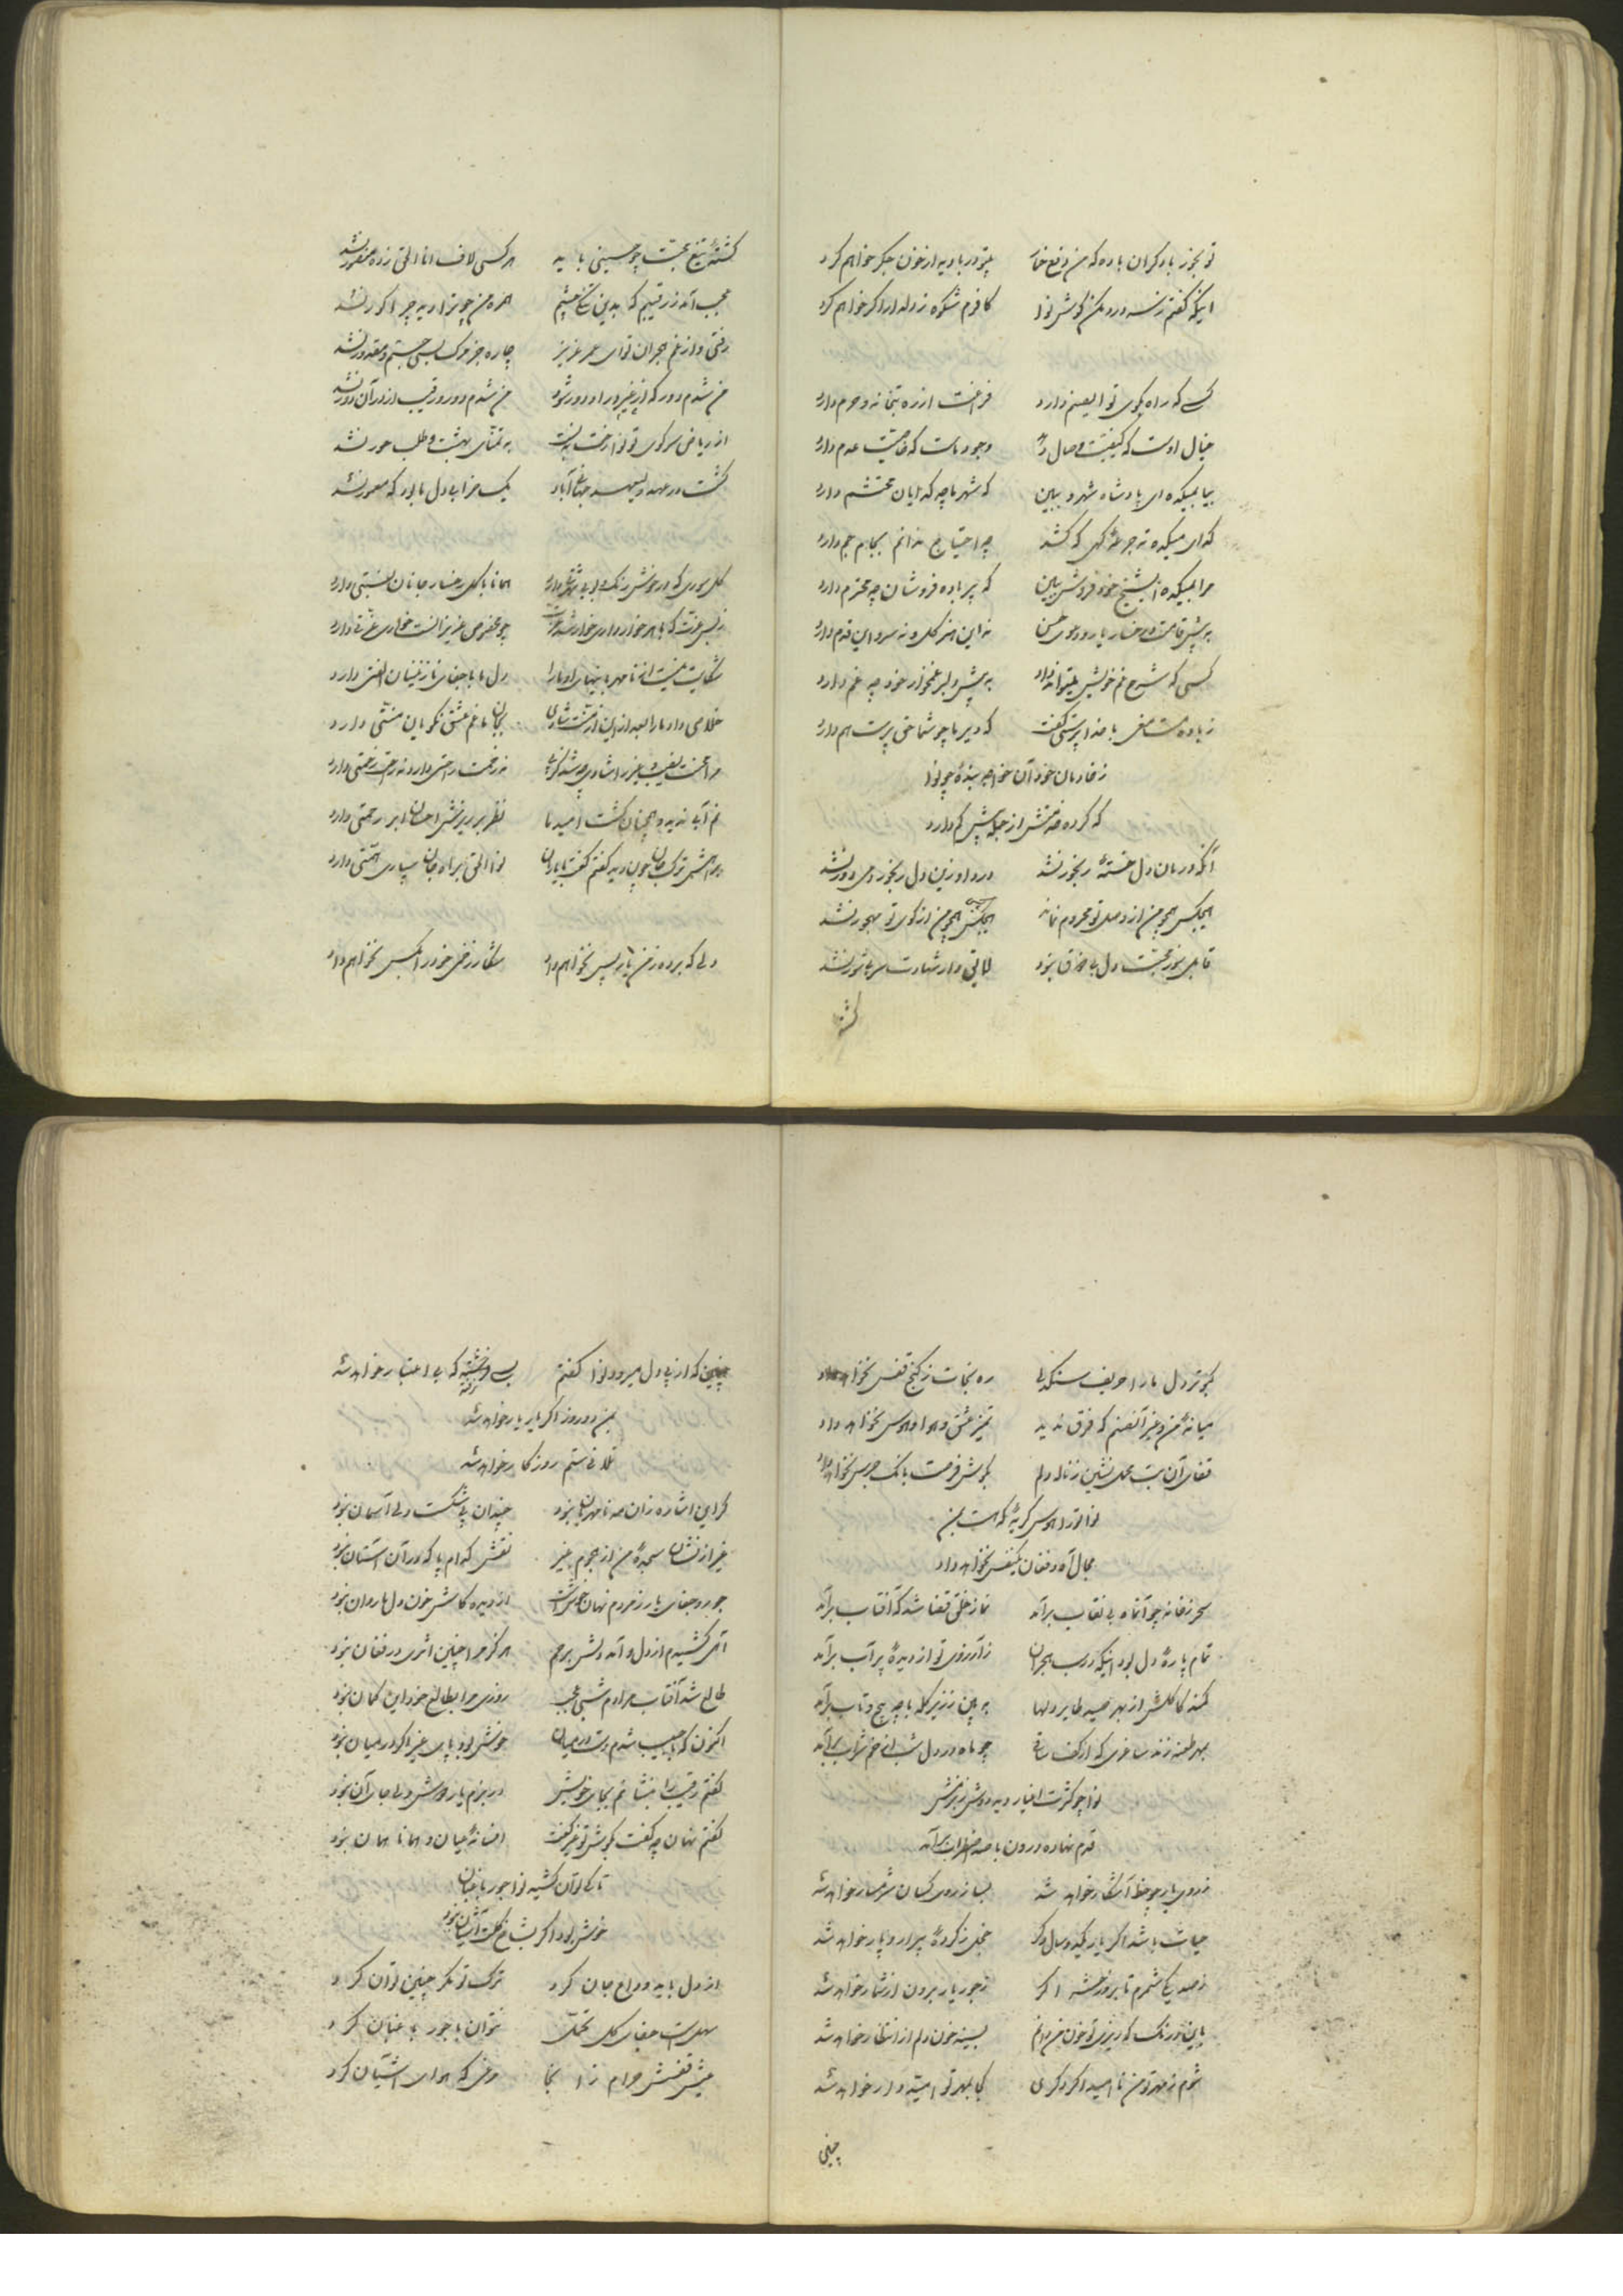 تو بخور با دگران باده که من
اینکه گفتم ز کافرم شکوه ز دلدار اگر خواهم کرد
کسی که راه بکوی تو ای صنم دارد فراغت از ره بتخانه و حرم دارد
خیال اوست که کیفیت وصال دهد وجود ماست که خاصیت عدم دارد
بیا بمیکده ای پادشاه شهر و ببین که شهر ما چه گدایان محتشم دارد
گدای میکده ته جرعه که کشد چه احتیاج ندانم بجام جم دارد
مرا بمیکده ای شیخ خود فروش ببین که پیر باده فروشان چه محترم دارد
به پیش قامت و رخسار یار دعوی حسن نه این هنر گل و نه سرو این قدم دارد
کسی که شرح غم خویش میتواند داد به پیش دلبر غمخوار خود چه غم دارد
ز باده مست مغی با خدا پرستی گفت که دیر ما چو شما حق پرست هم دارد
ز خادمان خود آن خواجه بنده چو نوا
که کرده خدمتش از جمله بیش کم دارد
آنکه درمان دل خسته رنجور نشد درد او زین دل رنجور دمی دور نشد
هیچکس همچو من از وصل تو محروم نماند هیچکس همچو من از کوی تو مهجور نشد
قابل سوز محبت دل بی ذوق نبود لایق دار شهادت سر بی شور نشد
کشته
کشته تیغ محبت چو حسینی باید هر کسی لاف انا الحق زد و منصور نشد
عجب آمد ز رقیبم که بدین تنگ چشم همره من چو ترا دید چرا کور نشد
رفتی و از غم هجران تو ای عمر عزیز چاره جز مرگ بسی جستم و مقدور نشد
من شدم دور که از غیر در او دور شود من شدم دور و رقیب از در آن دور نشد
از ریاض سر کوی تو نوا رخت نبست به تمنای بهشت و طلب حور نشد
گشت در عهد ولیعهد جهانی آباد یک خراب دل ما بود که معمور نشد
گل سوری که در خوبی رنگ و بوی شهرتی دارد همانا با گل رخسار جانان نسبتی دارد
شکایت نیست از نامهربانیهای او ما را دل ما با جفای نازنینان الفتی دارد
غلامی داد ما را بعد ازین از منت شادی بجان ما غم عشق نکویان منتی دارد
غم آبی ندید و همچنان کشت امید ما نظر بر ریزش احسان ابر رحمتی دارد
دلی که برده ز من باز پس نخواهم داد شکار زخمی خود را بکس نخواهم داد
کبوتر دل ما را حریف سنگدلی ره نجات ز کنج قفس نخواهد داد
میانه من و غیر آن صنم که فرق ندید تمیز عشق و هوا و هوس نخواهد داد
فغان آن بت محمل نشین ز ناله دلم بگوش فرصت بانگ جرس نخواهد داد
نوا تو را هوس گریه که هست بمن
مجال آه و فغان یکنفس نخواهد داد
سحر ز خانه چو آن ماه بی نقاب برآمد نماز خلق قضا شد که آفتاب برآمد
تمام پاره دل بود اینکه در شب هجران ز آرزوی تو از دیده پر آب برآمد
کمند کاکلش از بهر صید طایر دلها به بین ز زیر کله با چه پیچ و تاب برآمد
بمهر طعنه زند ساغری که از کف ساقی چو ماه در دل شب از خم شراب برآمد
نوا چو کثرت اغیار دید دوش ز بزمش
قدم نهاده درون با صد اضطراب برآمد
ز روی یار چو خط آشکار خواهد شد بسا ز روی کسان شرمسار خواهد شد
حیات باشد اگر یار یکدو سال دگر خجل ز کرده پیرار و پار خواهد شد
ز صد یکی شمرم تا بروز حشر اگر ز جور یار برون از شمار خواهد شد
باین درنگ که ریزی تو خون من دانم بسینه خون دلم از انتظار خواهد شد
شوم ز مهر تو من ناامید اگر دگری کی بمهر تو امیدوار خواهد شد
چنین
چنین که از پی دل میرود نوا گفتم که بی اعتبار خواهد شد
بمن دو روز اگر یار یار خواهد شد
تلافی ستم روزگار خواهد شد
گر این اشاره زان مه نامهربان نبود چندان پی شکست دلی آسمان نبود
غیر از نشان سجده من از هجوم غیر نقش کدام پا که در آن آستان نبود
جور و جفای یار ز مردم نهان خوش است از دیده کاش خون دل ما روان نبود
آهی کشیدم از دل و آمد دلش برحم هرگز مرا چنین اثری در فغان نبود
طالع شد آفتاب مرادم شبی عجب روزی مرا بطالع خود این گمان نبود
اکنون که با حبیب شدم دست در میان خوش بود پای غیر اگر در میان نبود
گفتم رقیب را بنشانم بجای خویش در بزم یار دوش ولی جای آن نبود
گفتم نهان چه گفت بگوش تو غیر گفت افسانه میان و همانا همان نبود
تا کی توان کشید نوا جور باغبان
خوش بود اگر بشاخ گلت آشیان نبود
از دل باید وداع جان کرد ترک تو مگر چنین توان کرد
سهل است جفای گل تحمل نتوان با جور باغبان کرد
عیش قفسش حرام زانجا مرغی که هوای آشیان کرد